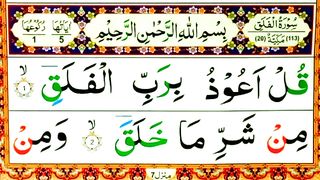 سُوْرَةُ الْفَلَقِ
(113) مَكِّيَّةٌ (20)
بِسْمِ اللّٰهِ الرَّحْمٰنِ الرَّحِيْمِ
اٰيَاتُهَا 5 رُكُوْعُهَا 1
قُلْ اَعُوْذُ بِرَبِّ الْفَلَقِ ۙ‏ 1
مِنْ شَرِّ مَا خَلَقَ ۙ‏ 2 وَمِنْ
منزل 7